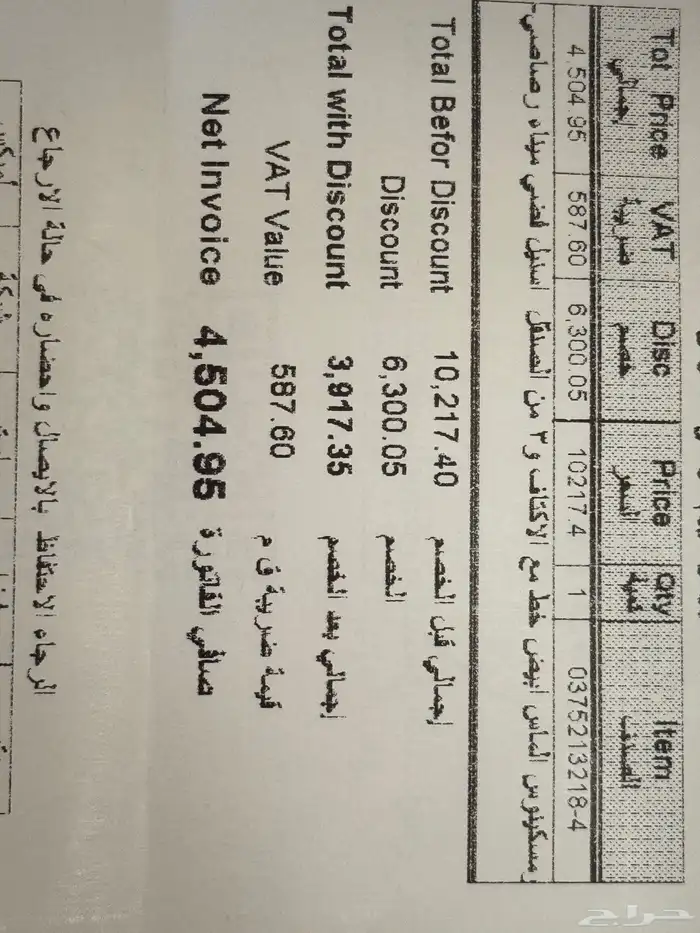 Tot Price VAT Disc Price Qty Item
إجمالي ضريبة خصم السعر كمية الصنف
4,504.95 587.60 6,300.05 10217.4 1 0375213218-4
مسكينوس الماس ابيض خط مع الاكتاف و ٣ من الصنقل استيل فضي ميناء رصاصي-
Total Befor Discount 10,217.40 إجمالي قبل الخصم
Discount 6,300.05 الخصم
Total with Discount 3,917.35 إجمالي بعد الخصم
VAT Value 587.60 قيمة ضريبة ق م
Net Invoice 4,504.95 صافي الفاتورة
الرجاء الاحتفاظ بالايصال واحضاره في حالة الارجاع
حراج